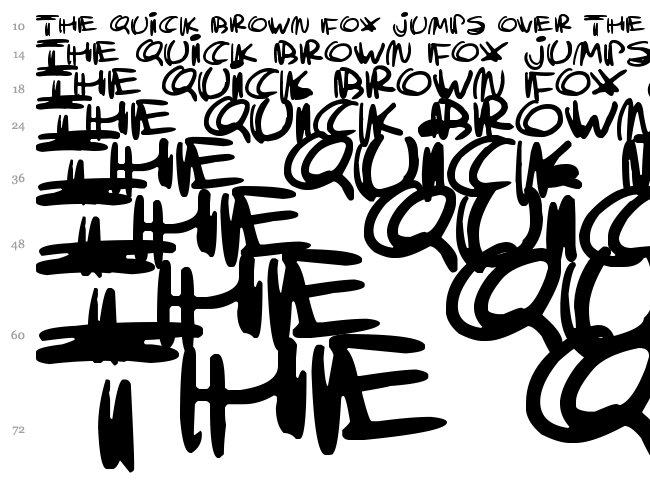 10 THE QUICK BROWN FOX jUMPS OVER THE
14 THE QUICK BROWN FOX jUMPS
18 THE QUICK BROWN FOX
24 THE QUICK BROWN
36 THE QUICK
48 THE QUI
60 THE Q
72 THE Q